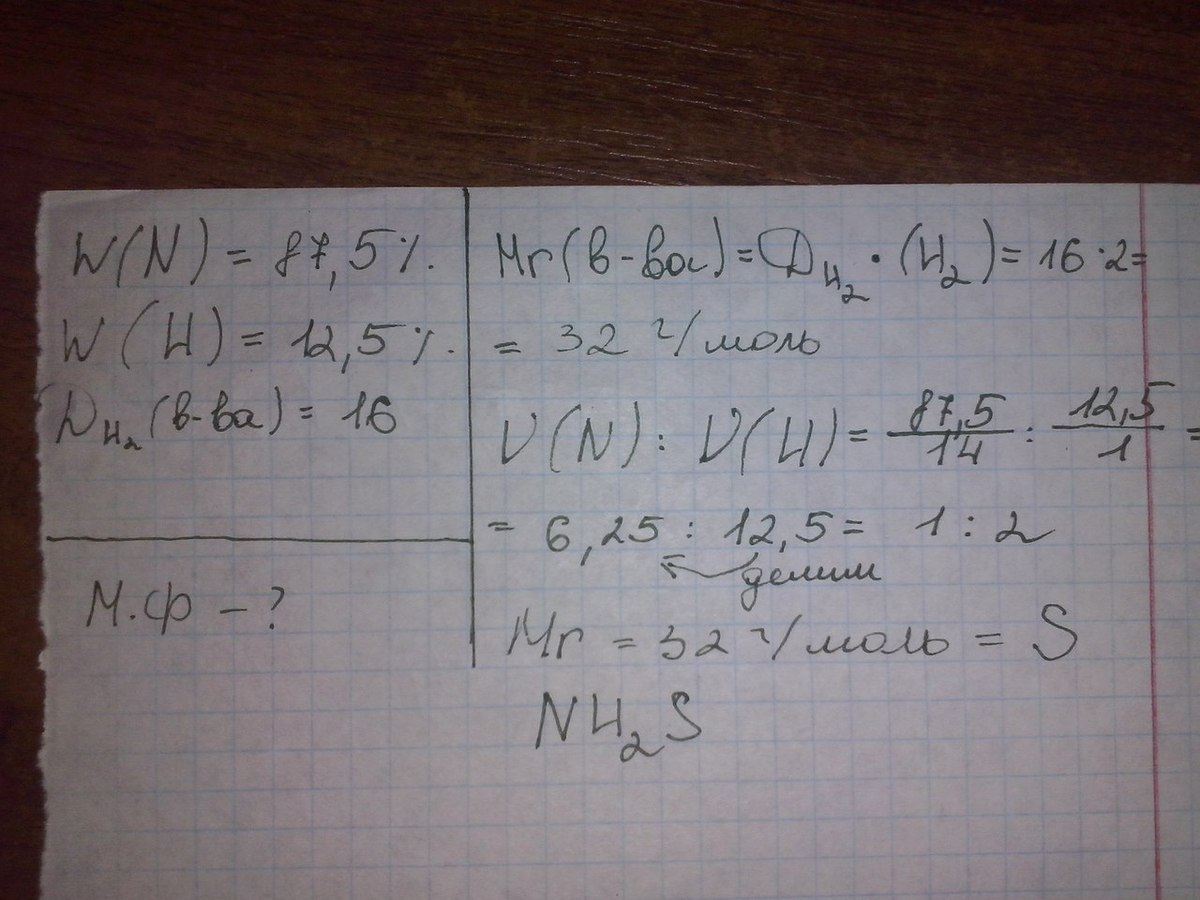 W(N) = 87,5%.
W(H) = 12,5%.
D_H₂(в-ва) = 16
М.ф – ?
Mr(в-ва) = D_H₂ · (H₂) = 16·2=
= 32 г/моль
ν(N) : ν(H) = 87,5/14 : 12,5/1 =
= 6,25 : 12,5 = 1 : 2
делим
Mr = 32 г/моль = S
NH₂S